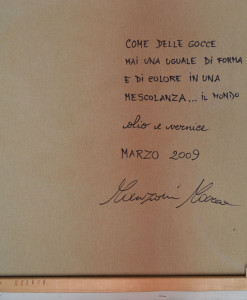 COME DELLE GOCCE
MAI UNA UGUALE DI FORMA
E DI COLORE IN UNA
MESCOLANZA... IL MONDO
olio e vernice
MARZO 2009